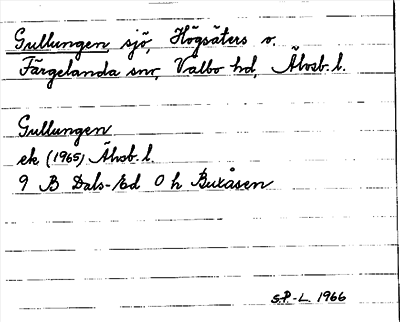 Gullungen, sjö, Högsäters o.
Färgelanda snr, Valbo hd, Älvsb. l.
Gullungen
ek (1965) Älvsb. l.
9 B Dals-Ed 0 h Buxåsen
SP-L 1966